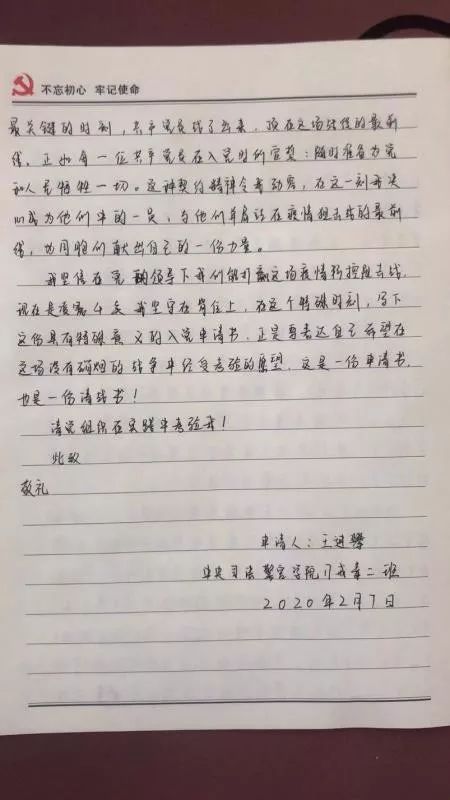 不忘初心 牢记使命
最关键的时刻，共产党员站了出来，顶在这场战役的最前
线，正如每一位共产党员在入党时的宣誓：随时准备为党
和人民牺牲一切。这种契约精神令我动容，在这一刻我决
心成为他们中的一员，与他们并肩站在疫情狙击战的最前
线，为同胞们献出自己的一份力量。
我坚信在党的领导下我们能打赢这场疫情防控阻击战，
现在是凌晨4点 我坚守在岗位上，在这个特殊时刻，写下
这份具有特殊意义的入党申请书，正是要表达自己希望在
这场没有硝烟的战争中经受考验的愿望，这是一份申请书，
也是一份请战书！
请党组织在实践中考验我！
此致
敬礼
申请人：王进
中央司法警官学院 二班
2020年2月7日